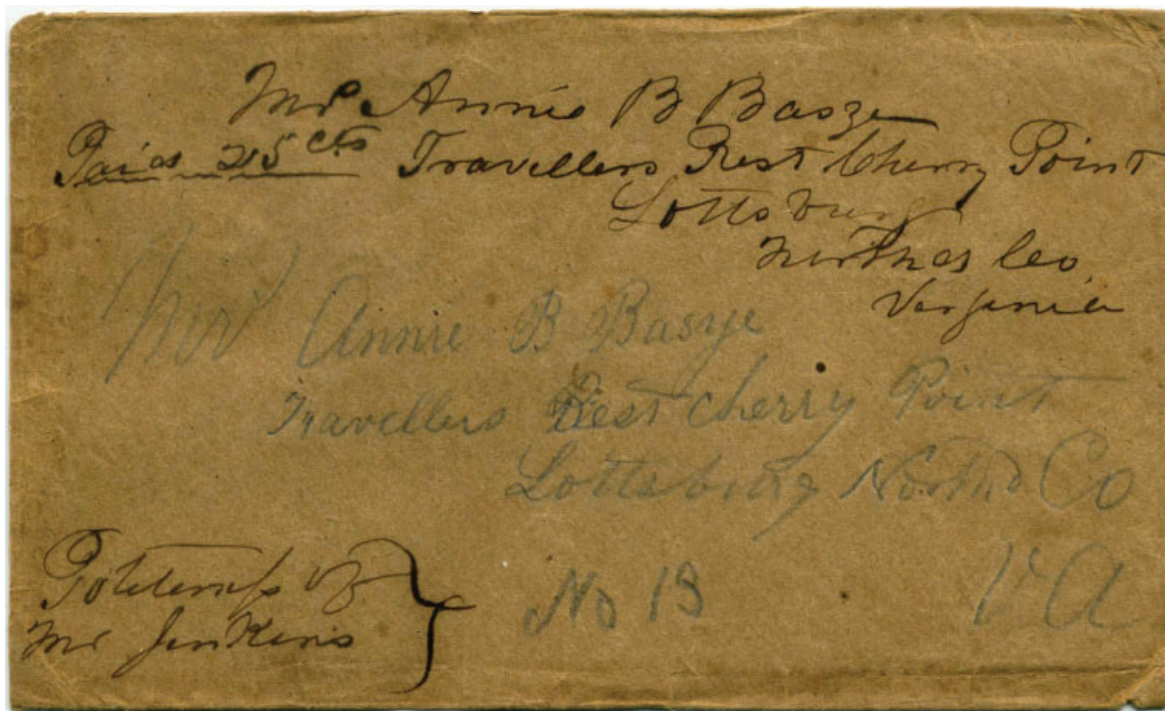 Mrs Annie B Basye
Paid 25 cts Travellers Rest Cherry Point
Lottsburg
Northd Co,
Virginia
Mrs Annie B Basye
Travellers Rest Cherry Point
Lottsburg North'd Co
VA
No 13
Mr Jenkins